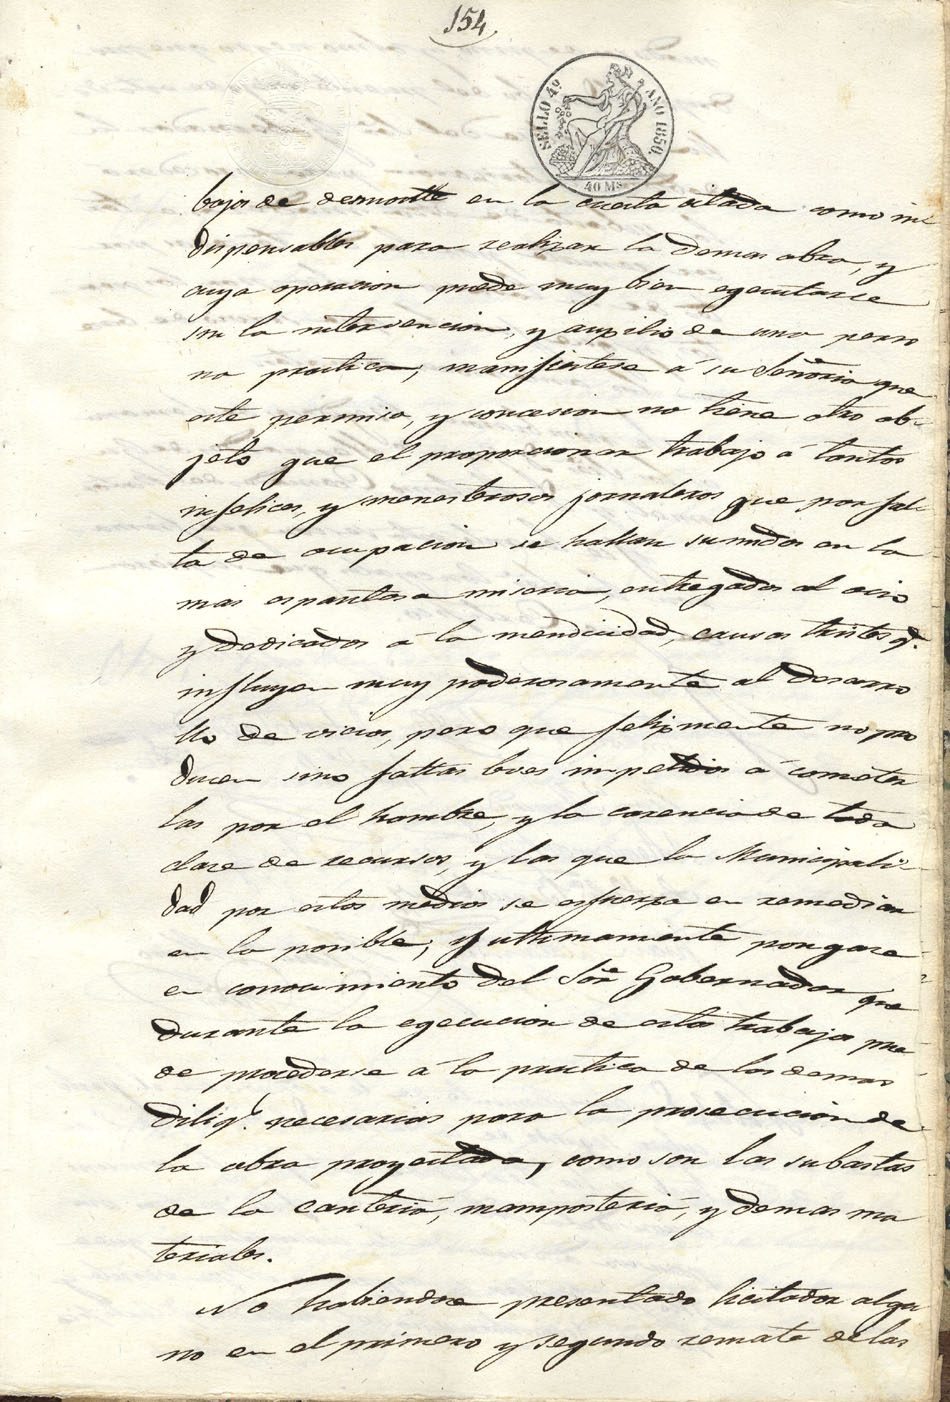 154
SELLO 4º AÑO 1850.
40 Ms
bajos de desmonte en la cuesta citada como in
dispensables para realizar la demas obra, y
cuya operacion puede muy bien egecutarse
sin la intervencion, y aupilio de una perso
na practica, manifiestese á su Señoria que
este permiso, y concesion no tiene otro ob-
jeto que el proporcionar trabajo á tantos
infelices, y menesterosos jornaleros que por fal-
ta de ocupacion se hallan sumidos en la
mas espantosa miseria, entregados al ocio
y dedicados á la mendicidad, causas tristes q.
influyen muy poderosamente al desarro
llo de vicios, pero que felizmente no pro
ducen sino faltas leves impelidos á cometer
las por el hambre, y la carencia de toda
clase de recursos, y las que la Municipali-
dad por estos medios se esfuerza en remediar
en lo posible; y ultimamente pongase
en conocimiento del Sor Gobernador que
durante la egecucion de estos trabajos pue
de procederse á la practica de las demas
diligs. necesarias para la prosecucion de
la obra proyectada, como son las subastas
de la canteria, mamposteria, y demas ma
teriales.
No habiendose presentado licitador algu
no en el primero y segundo remate de las